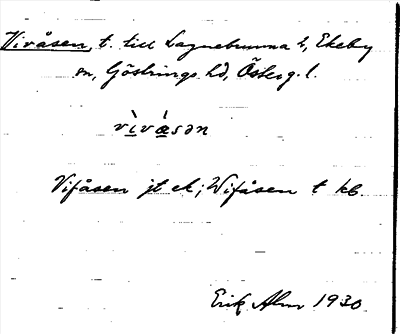 Vivåsen, t. till Lagnebrunna h, Ekeby
sn, Göstrings hd, Österg. l.
vìvǽsən
Vifåsen jt ek; Wifåsen t kb.
Erik Alm 1930